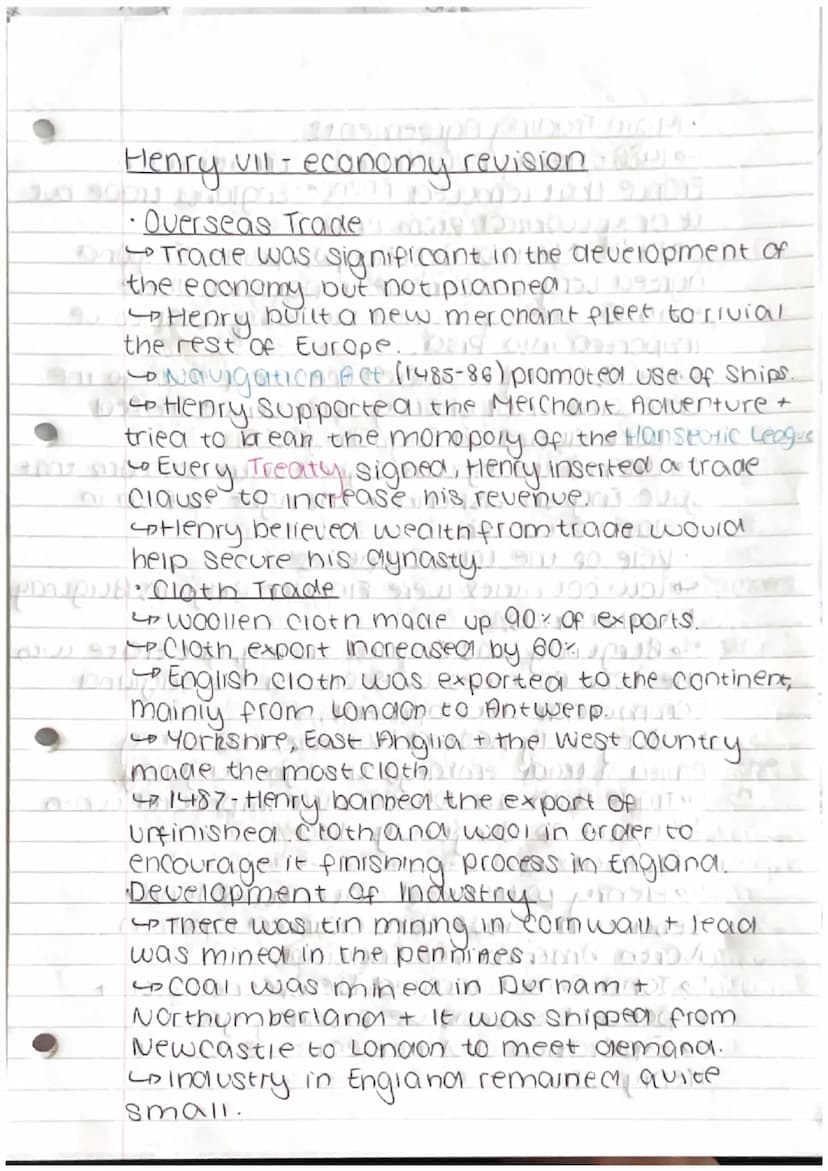 Henry VII - economy revision
· Overseas Trade
↳ Trade was significant in the development of
the economy but not planned
↳ Henry built a new merchant fleet to rivial
the rest of Europe.
↳ Navigation Act (1485-86) promoted use of ships.
↳ Henry supported the Merchant Adventure +
tried to break the monopoly of the Hanseatic League
↳ Every Treaty signed, Henry inserted a trade
clause to increase his revenue.
↳ Henry believed wealth from trade would
help secure his dynasty.
· Cloth Trade
↳ Woollen cloth made up 90% of exports.
↳ Cloth export increased by 60%
↳ English cloth was exported to the continent,
mainly from London to Antwerp.
↳ Yorkshire, East Anglia + the West Country
made the most cloth
↳ 1487 - Henry banned the export of
unfinished cloth and wool in order to
encourage it finishing process in England.
· Development of Industry
↳ There was tin mining in Cornwall + lead
was mined in the pennines.
↳ Coal was mined in Durham +
Northumberland + it was shipped from
Newcastle to London to meet demand.
↳ Industry in England remained quite
small.